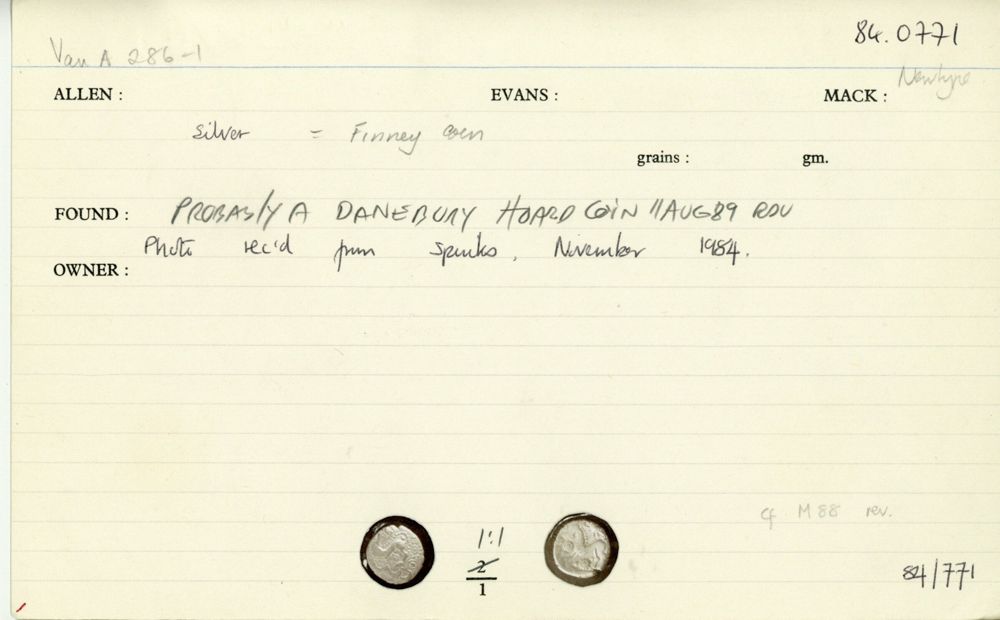 84.0771
Van A 286-1
New type
ALLEN :
EVANS :
MACK :
Silver = Finney coin
grains :
gm.
FOUND : PROBABLY A DANEBURY HOARD COIN 11AUG89 RDV
Photo rec'd from Spinks, November 1984.
OWNER :
cf M88 rev.
1:1
2
1
84/771